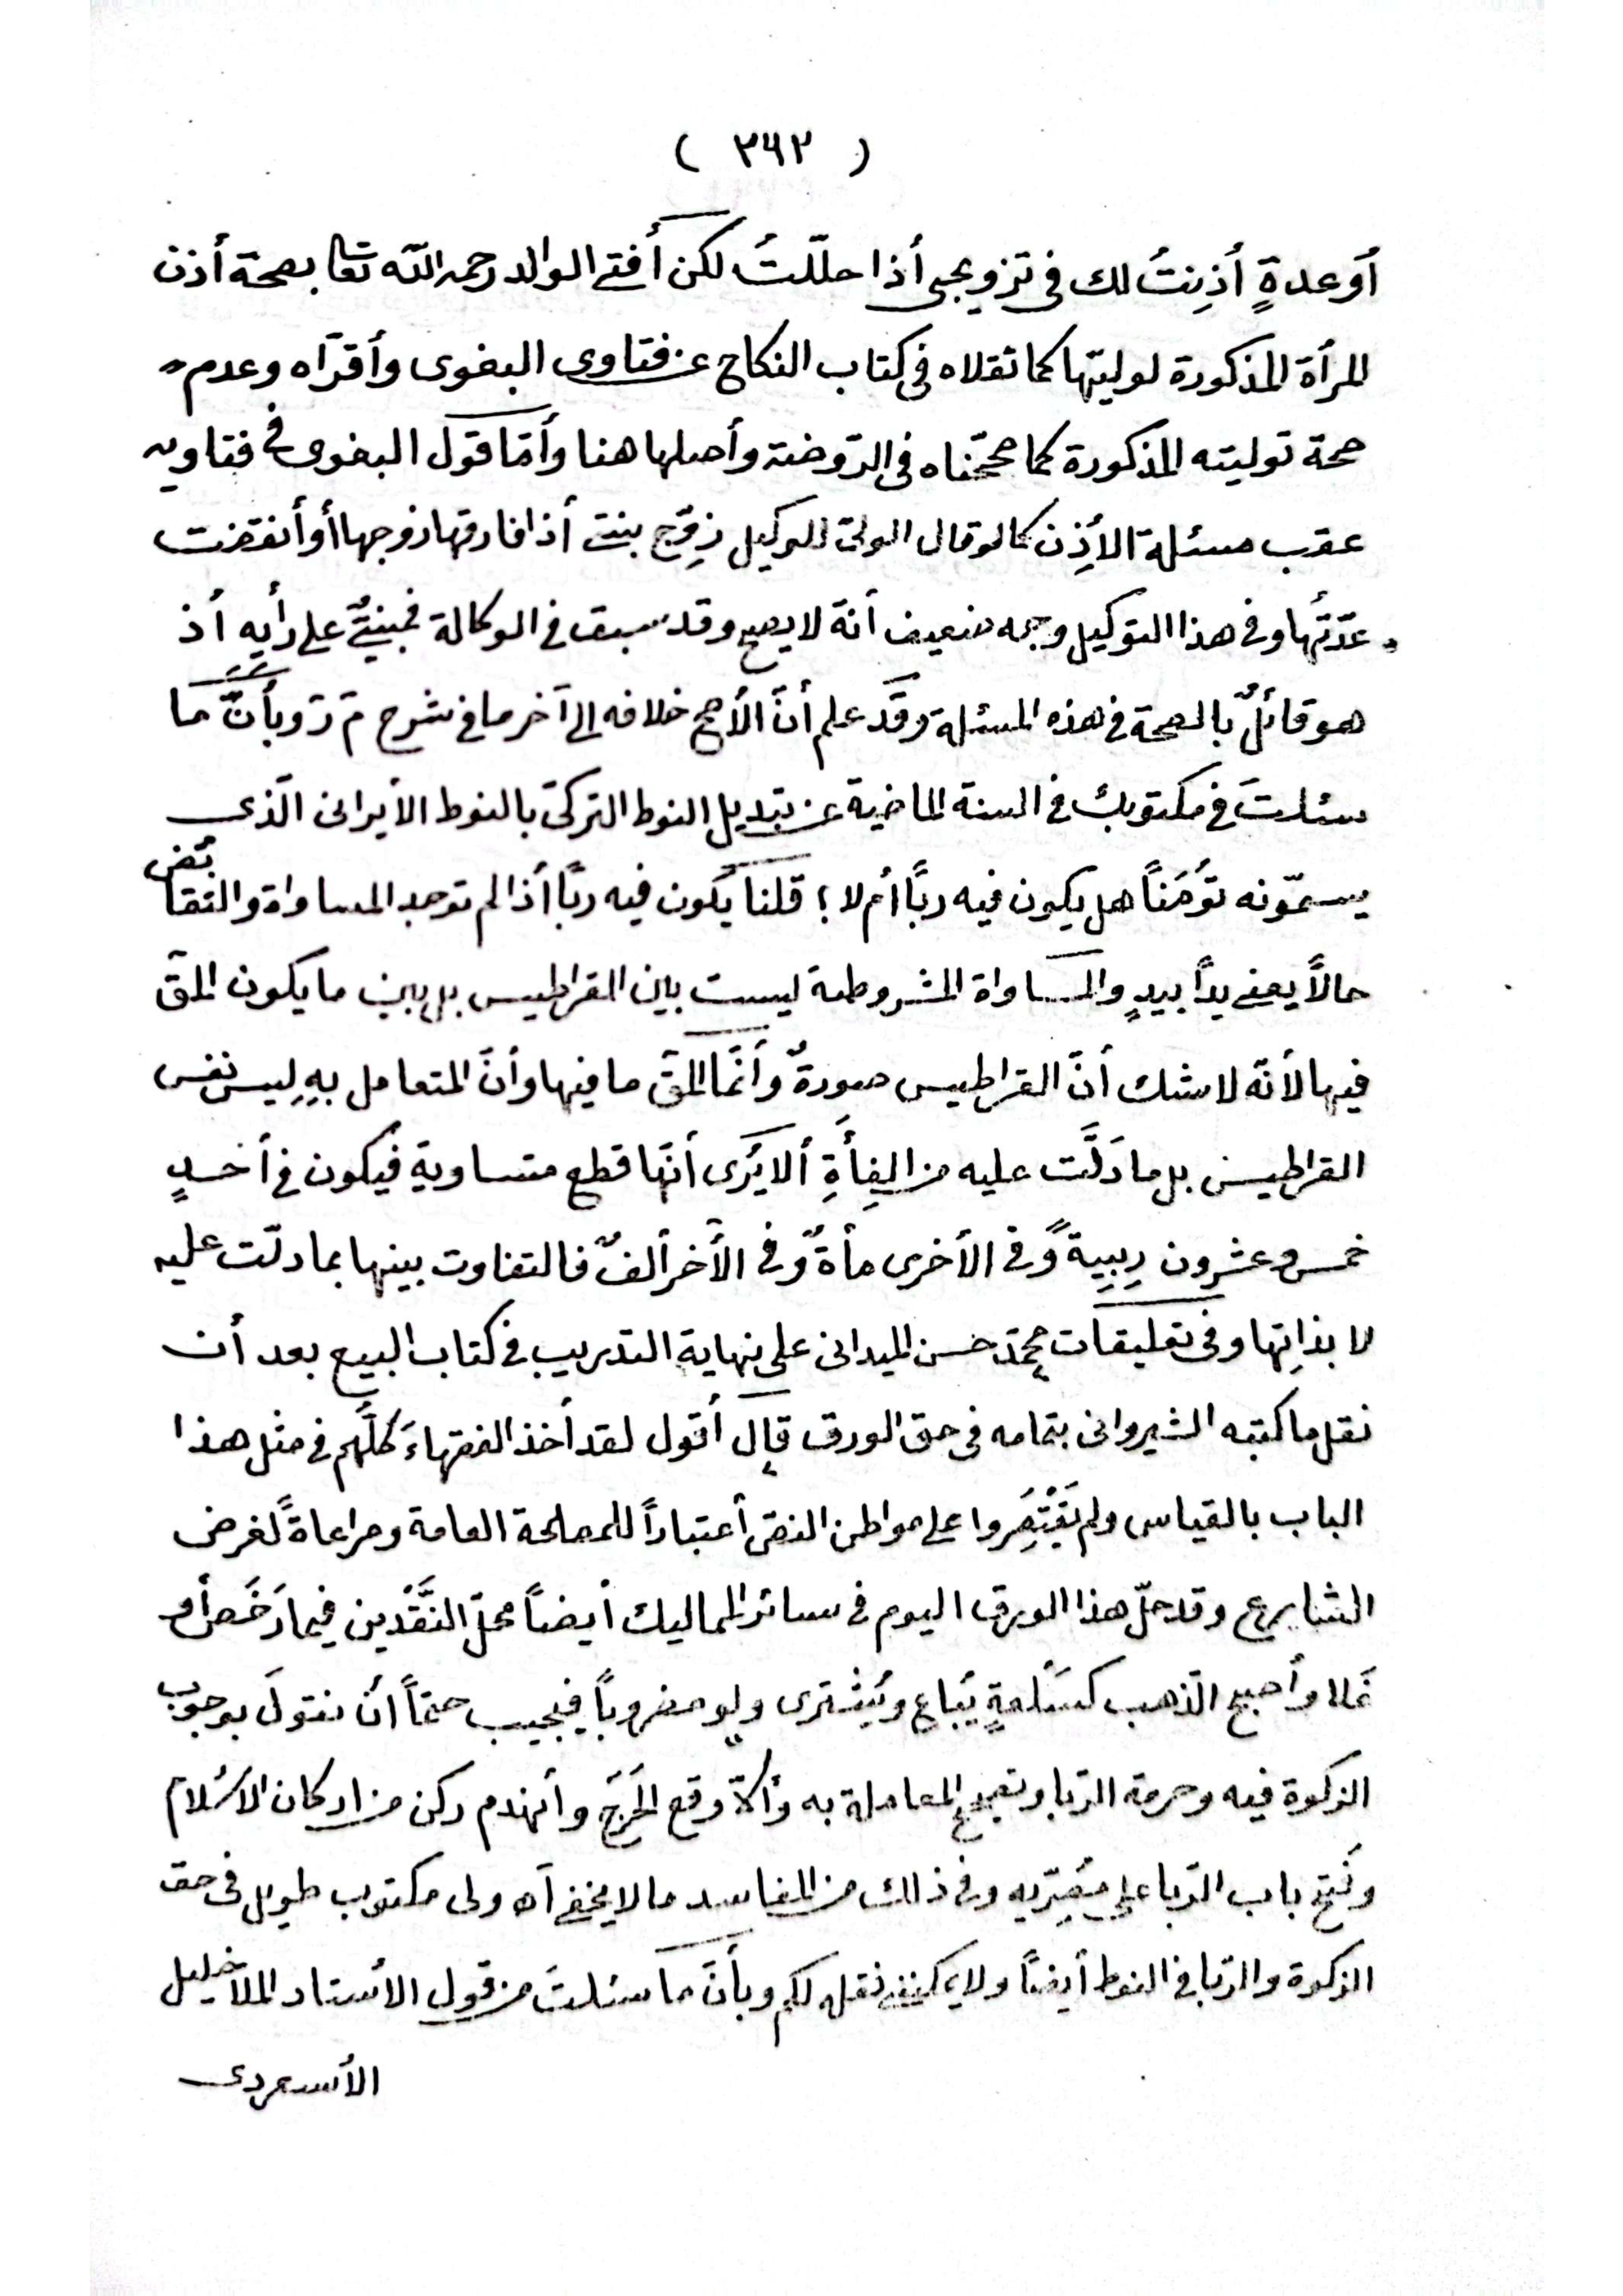 ( ٣٦٢ )
أو عدةٍ أذِنتُ لك فى تزويجى أذا حلّلتُ لكن أفتى الوالد رحمه الله تعا بصحة أذن
المرأة المذكورة لوليّها كما نقلاه فى كتاب النكاح عن فتاوى البغوى وأقرّاه وعدم
صحة توليته المذكورة كما صحّحناه فى الرّوضة وأصلها هنا وأمّا قول البغوى فى فتاويه
عقب مسئلة الأذِن كما لو قال الولىّ للوكيل زوِّج بنتى أذا فارقها زوجها أو أنقضت
عدّتُها وفى هذا التوكيل وجه ضعيف أنّه لا يصح وقد سبق فى الوكالة فمبنىٌّ على رأيه أذ
هو قائلٌ بالصحة فى هذه المسئلة وقد علم أنّ الأصح خلافه إلى آخر ما فى شرح م ر وبأنّ ما
سئلتَ فى مكتوبك فى السنة الماضية عن تبديل النوط التركىّ بالنوط الأيرانى الّذى
يسمّونه تُوَمَناً هل يكون فيه ربًا أم لا ؟ قلنا يكون فيه ربًا أذا لم توجد المساواة والتقابُض
حالاً يعنى يداً بيدٍ والمساواة المشروطة ليست بين القراطيس بل بين ما يكون المق
فيها لأنّه لا شك أنّ القراطيس صورةٌ وأنّما المق ما فيها وأنّ المتعامل بهِ ليس نفس
القراطيس بل ما دَلَّت عليه من الفِأَةِ ألا يُرَى أنّها قطع متساوية فيكون فى أحدٍ
خمس وعشرون رِبِيةً وفى الأخرى مأةٌ وفى الأخر ألفٌ فالتفاوت بينها بما دلّت عليه
لا بذاتِها وفى تعليقات محمّد حسن الميدانى على نهاية التدريب فى كتاب البيع بعد أن
نقل ما كتبه الشيروانى بتمامه فى حق الورق قال أقول لقد أخذ الفقهاءَ كلّهم فى مثل هذا
الباب بالقياس ولم يَقْتَصِروا على مواطن النص أعتباراً للمصلحة العامة ومراعاةً لغرض
الشارع وقد حلّ هذا الورق اليوم فى سائر المماليك أيضاً محلّ النَّقْدين فيما رَخَص أو
غلا وأصبح الذّهب كسَلْعةٍ يُباع ويُشترى ولو مضروباً فيجب حتماً أن نقولَ بوجوب
الزكوة فيه وحرمة الرّبا وتصحيح المعاملة به وألّا وقع الحَرَجُ وأنهدم ركن من اركان الاسْلام
وفُتح باب الرّبا على وفى ذلك من المفاسد ما لا يخفى اه ولى مكتوب طويل فى حق
الزكوة والرّبا فى النوط أيضاً ولا يمكننى نقله لكم وبأنّ ما سئلتَ من قول الأستاد الملا خليل
الأسعردى